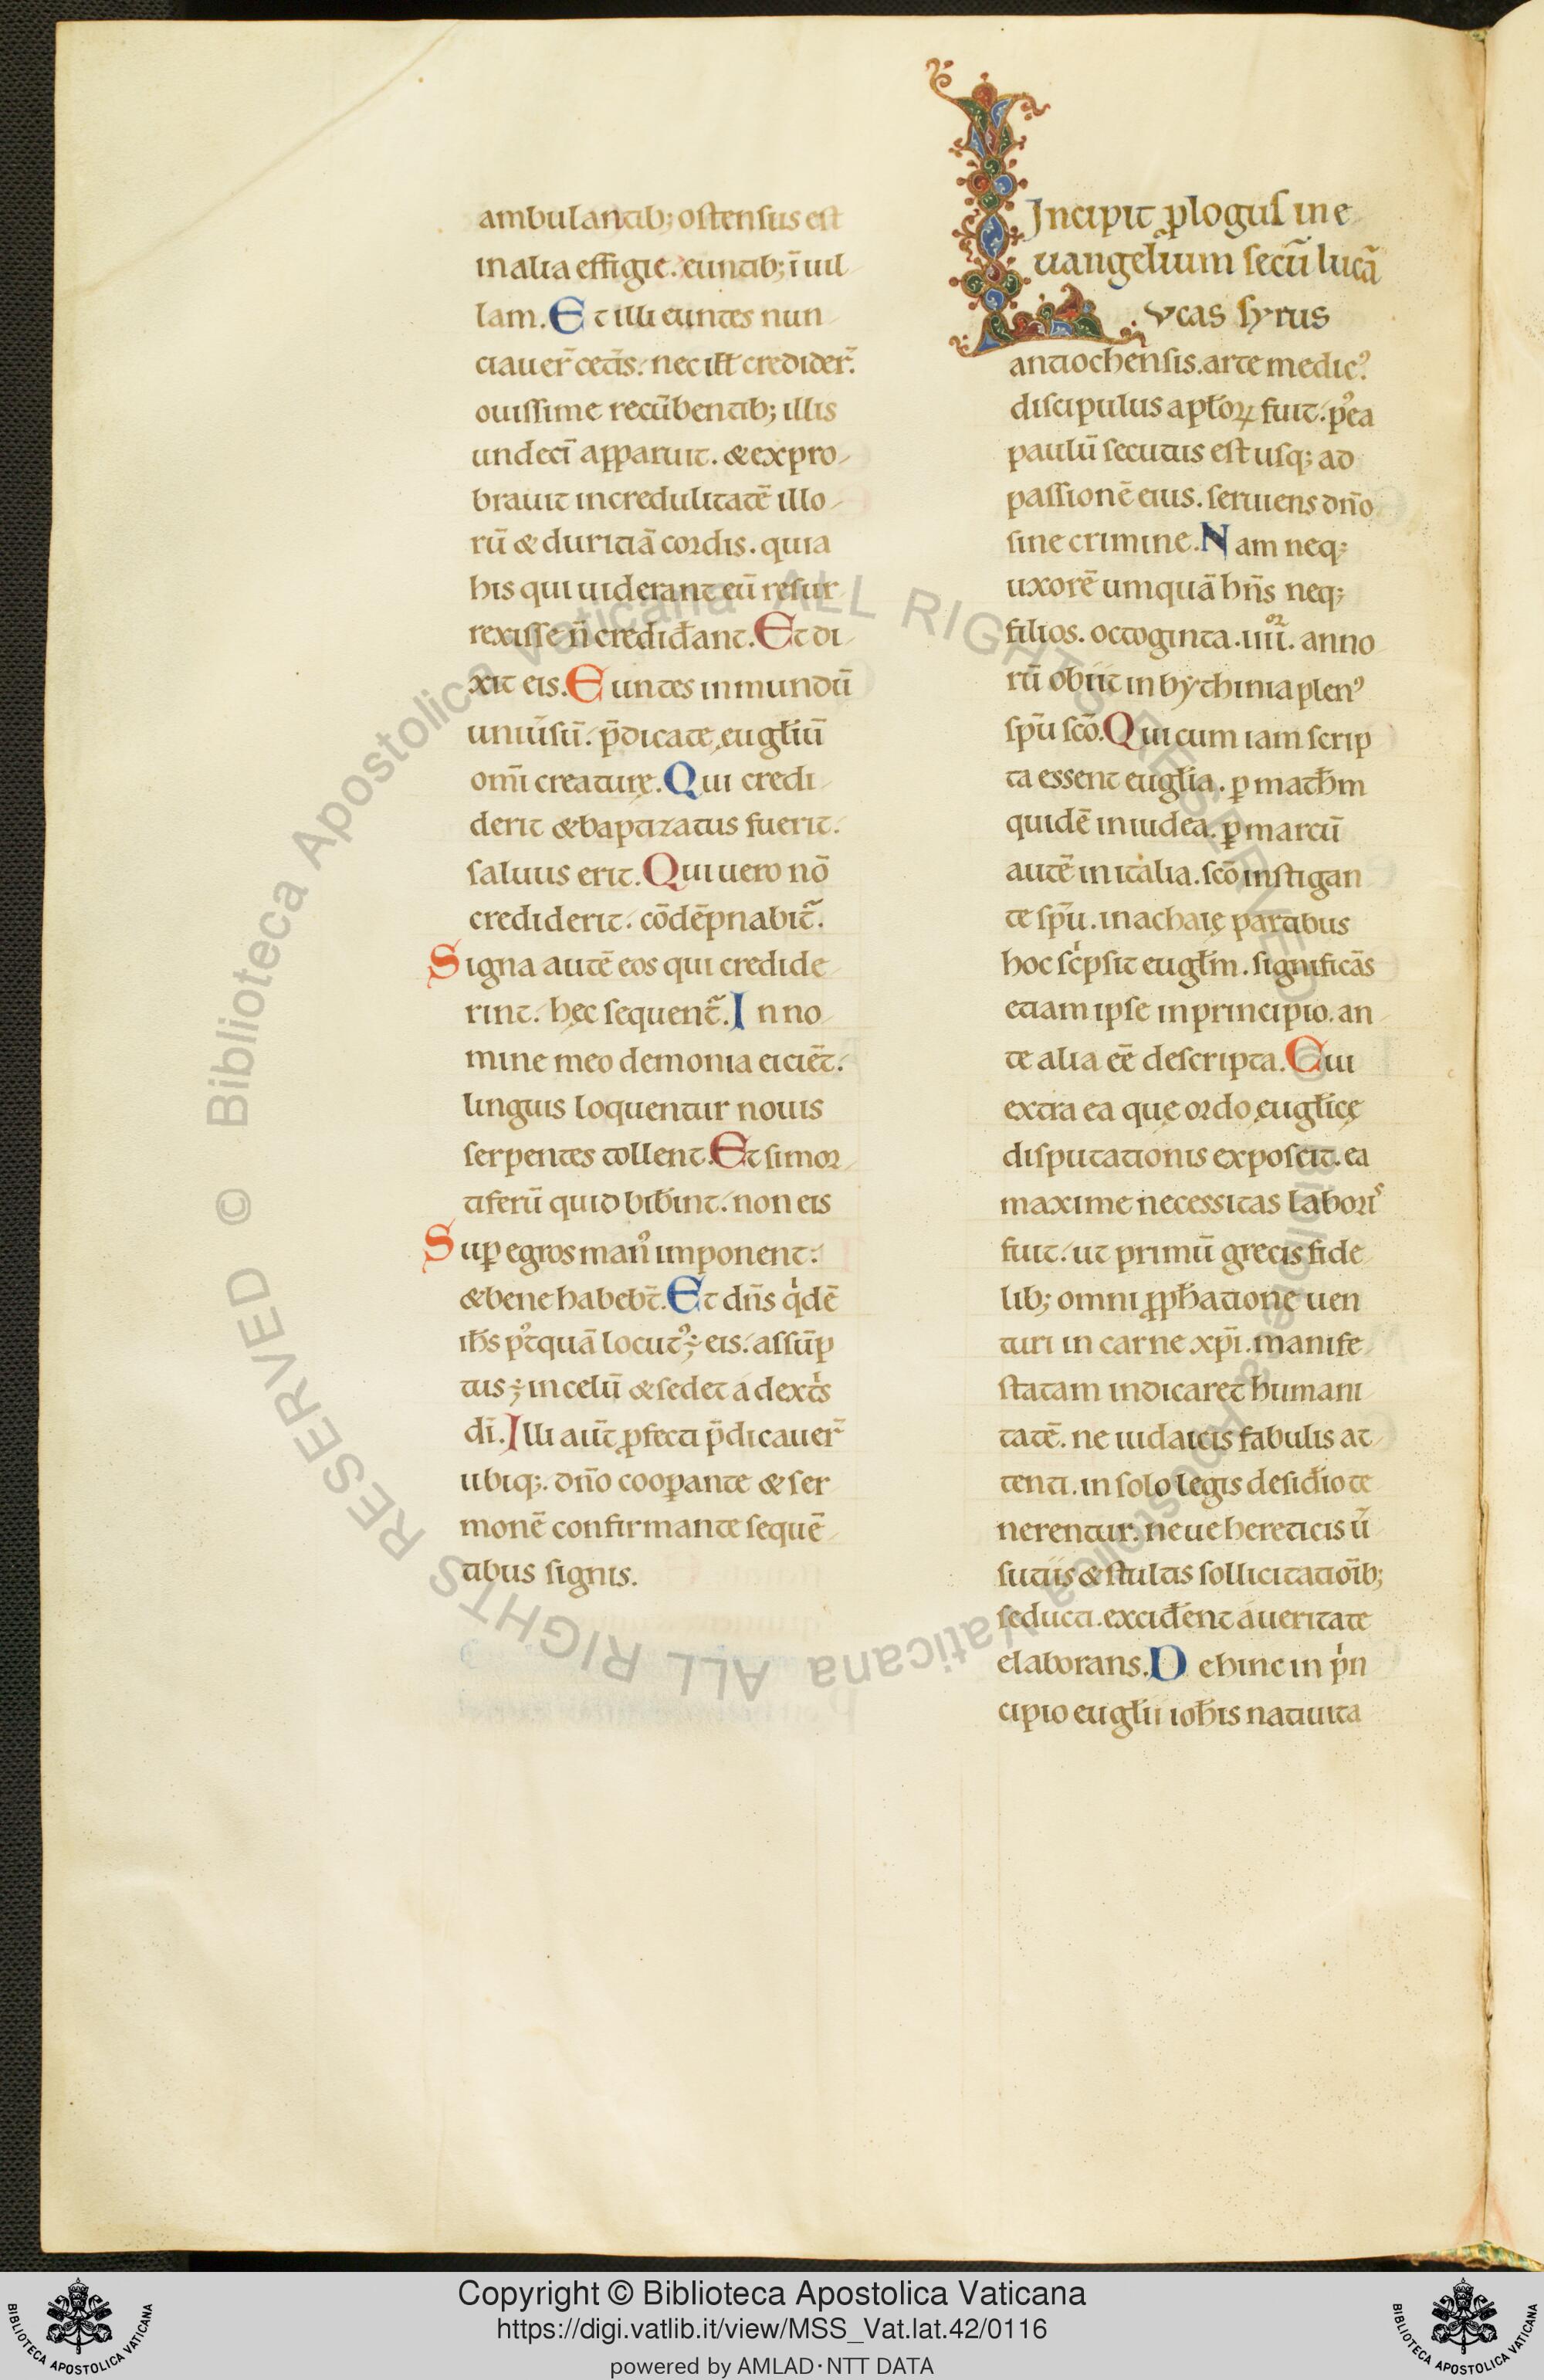 ambulantib; ostensus est
in alia effigie. euntib; ī uil
lam. Et illi euntes nun
ciauer̄ cet̄is. nec ill̄ credider̄.
ouissime recūbentib; illis
undecī apparuit. & expro
brauit incredulitatē illo
rū & duritiā cordis. quia
his qui uiderant eū resur
rexisse n̄ credid̄ant. Et di
xit eis. Euntes in mundū
uniūsū. p̄dicate euḡliū
omī creaturę. Qui credi
derit & baptizatus fuerit.
saluus erit. Qui uero nō
crediderit. cōdēpnabit᷑.
Signa autē eos qui credide
rint. hęc sequent᷑. In no
mine meo demonia eiciēt.
linguis loquentur nouis
serpentes tollent. Et si mor
tiferū quid bib̄int. non eis
Suꝑ egros manꝰ imponent.
& bene habebt̄. Et dn̄s qͥdē
ih̄s pꝰtquā locutꝰ ÷ eis. assūp
tus ÷ in celū & sedet a dext͛is
dī. Illi aūt ꝓfecti p̄dicauer̄
ubiq;. dn̄o cooꝑante & ser
monē confirmante sequē
tibus signis.
Incipit ꝓlogus in e
uangelium secū lucā
Lucas syrus
antiochensis. arte medicꝰ
discipulus apłoꝝ fuit. pꝰea
paulū secutus est usq; ad
passionē eius. seruiens dn̄o
sine crimine. Nam neq;
uxorē umquā hn̄s neq;
filios. octoginta. iiii᷒ʳ. anno
rū obiit in bythinia plenꝰ
sp̄u sc̄o. Qui cum iam scrip
ta essent euḡlia. ꝑ math̄m
quidē in iudea. ꝑ marcū
autē in italia. sc̄o instigan
te sp̄u. in achaię partibus
hoc scͥpsit euḡlm. significās
etiam ipse in principio. an
te alia eē descripta. Cui
extra ea que ordo euḡlicę
disputationis exposcit. ea
maxime necessitas laboriˢ
fuit. ut primū grecis fide
lib; omni ꝓph̄atione uen
turi in carne xp̄i. manife
statam indicaret humani
tatē. ne iudaicis fabulis at
tenti. in solo legis desid̄io te
nerentur. neue hereticis u̅
sutiis & stultis sollicitatioīb;
seducti. excid̄ent a ueritate
elaborans. Dehinc in pͥn
cipio euḡlii ioh̄is natiuita
© Biblioteca Apostolica Vaticana ALL RIGHTS RESERVED
© Biblioteca Apostolica Vaticana ALL RIGHTS RESERVED
Copyright © Biblioteca Apostolica Vaticana
https://digi.vatlib.it/view/MSS_Vat.lat.42/0116
powered by AMLAD·NTT DATA
BIBLIOTECA APOSTOLICA VATICANA
BIBLIOTECA APOSTOLICA VATICANA